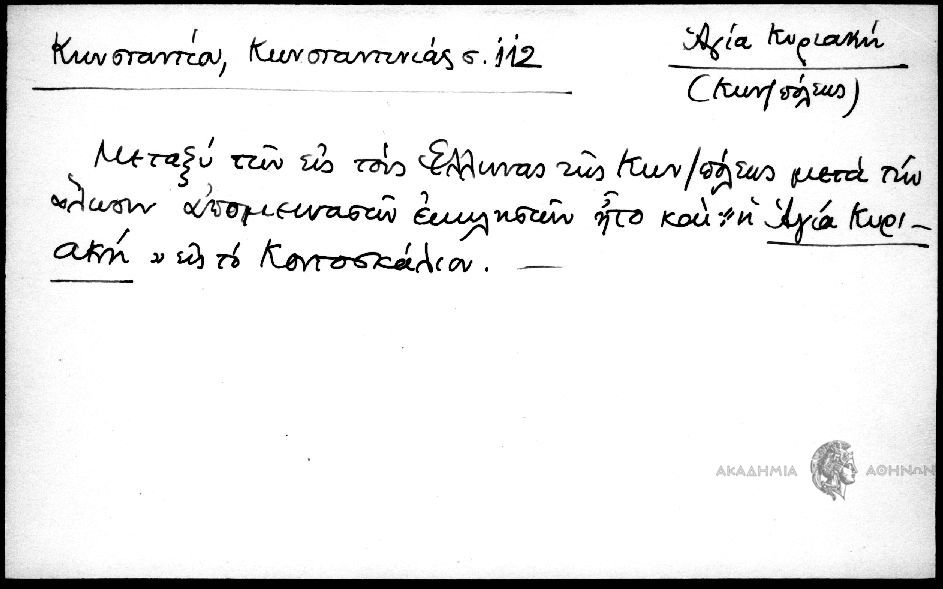 Κωνσταντίου, Κωνσταντινιάς σ. 112
Ἁγία Κυριακή
(Κων/πόλεως)
Μεταξύ τῶν εἰς τούς Ἕλληνας τῆς Κων/πόλεως μετά τήν
ἅλωσιν ἀπομεινασῶν ἐκκλησιῶν ἦτο καί "ἡ Ἁγία Κυρι-
ακή" εἰς τό Κοντοσκάλιον. —
ΑΚΑΔΗΜΙΑ ΑΘΗΝΩΝ